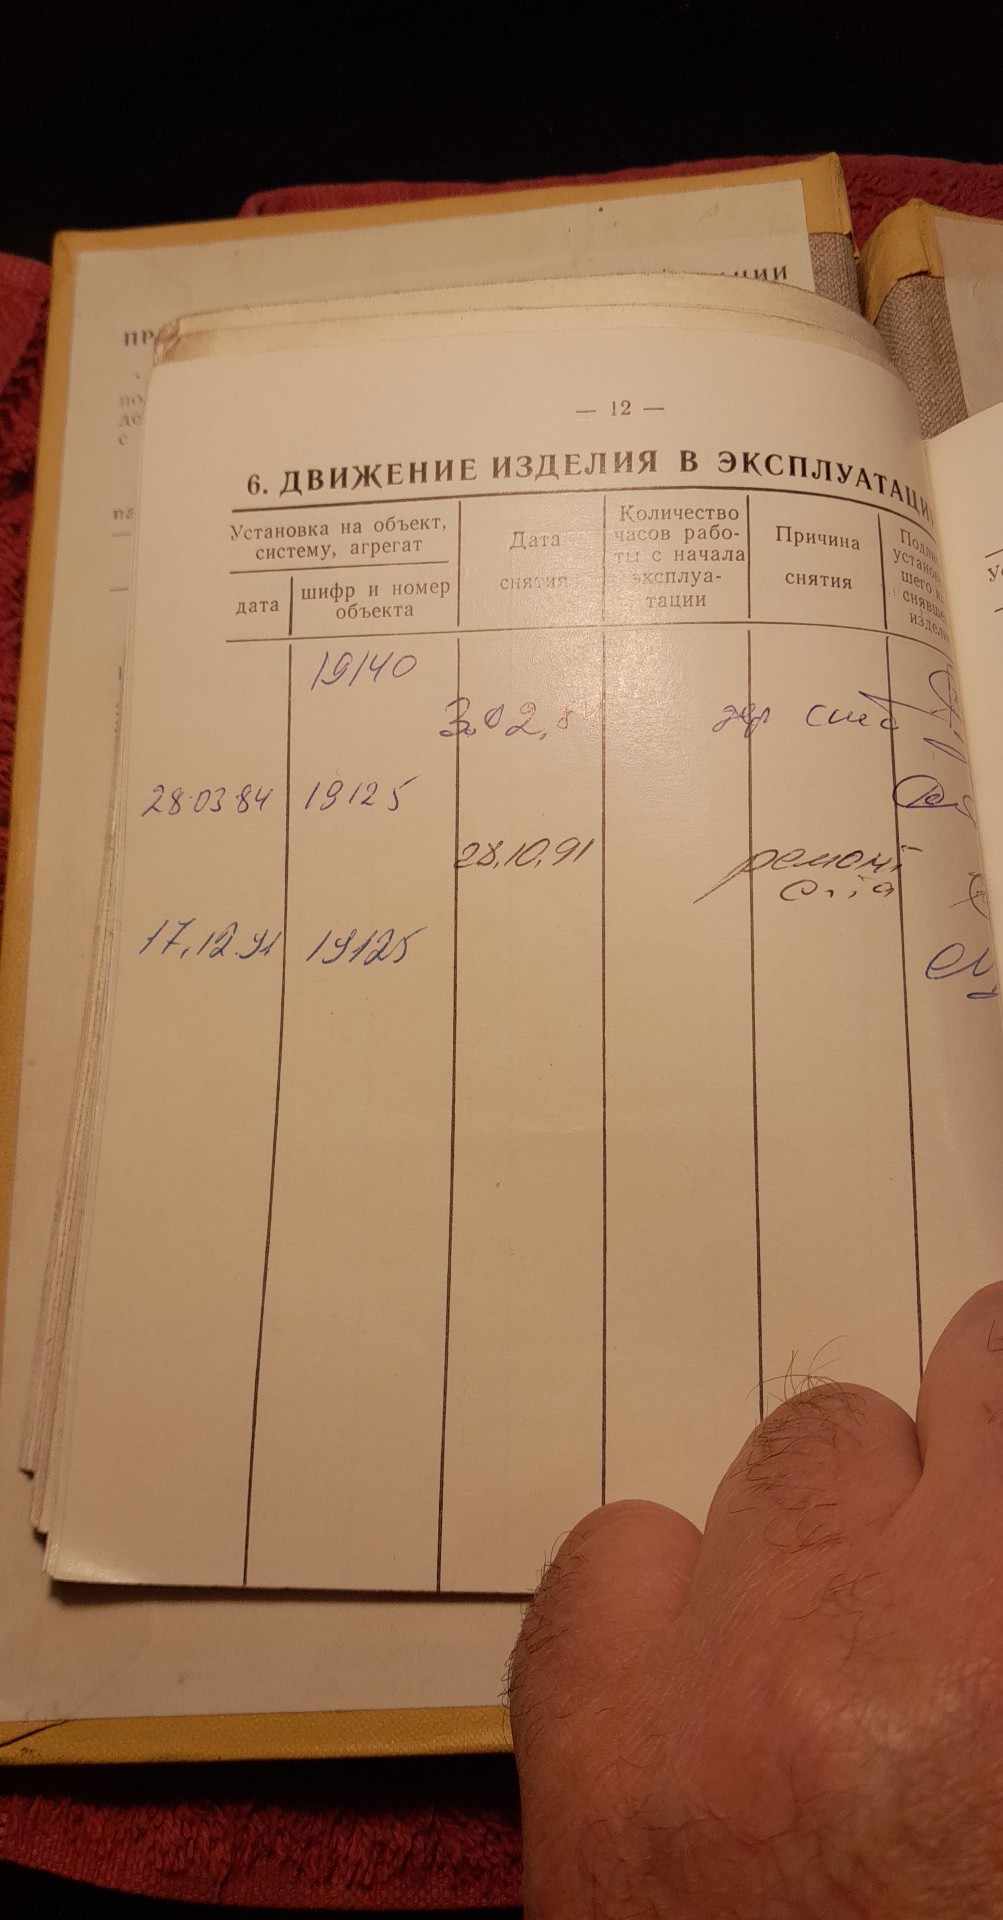 ции
ПР
по
де
с
па
— 12 —
6. ДВИЖЕНИЕ ИЗДЕЛИЯ В ЭКСПЛУАТАЦИ
Установка на объект,
систему, агрегат
дата
шифр и номер
объекта
Дата
снятия
Количество
часов рабо-
ты с начала
эксплуа-
тации
Причина
снятия
установ
шего и
снявше
издел
19140
28.03.84 19125
28.10.91 ремонт
17.12.91 19125